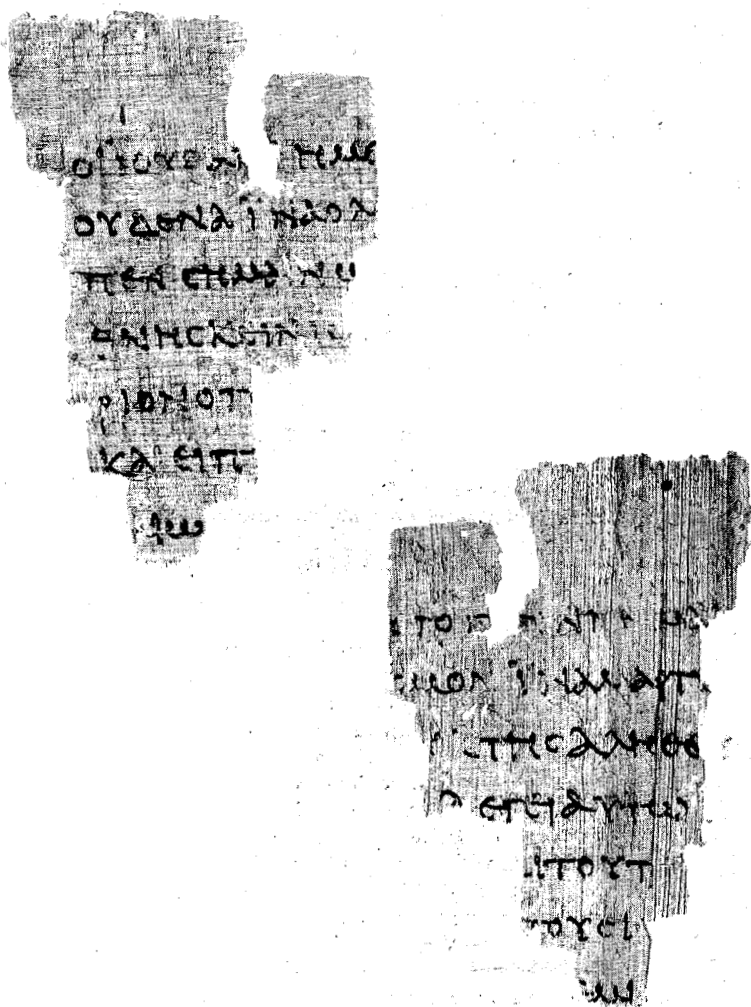 ΟΙ ΙΟΥΔΑΙ ΗΜΕ
ΟΥΔΕΝΑ ΪΝΑ Ο ΛΟ
ΠΕΝ ϹΗΜΑΙΝΩ
ΘΝΗϹΚΕΙΝ
ΡΙΟΝ Ο Π
ΚΑΙ ΕΙΠ
ΑΙΩ
ΤΟ ΓΕΓΕΝΝΗΜΑΙ
ϹΜΟΝ ΪΝΑ ΜΑΡΤΥ
ΤΗϹ ΑΛΗΘΕ
ΛΕΓΕΙ ΑΥΤΩ
ΑΙ ΤΟΥΤ
ΤΟΥϹ Ι
ΜΙ